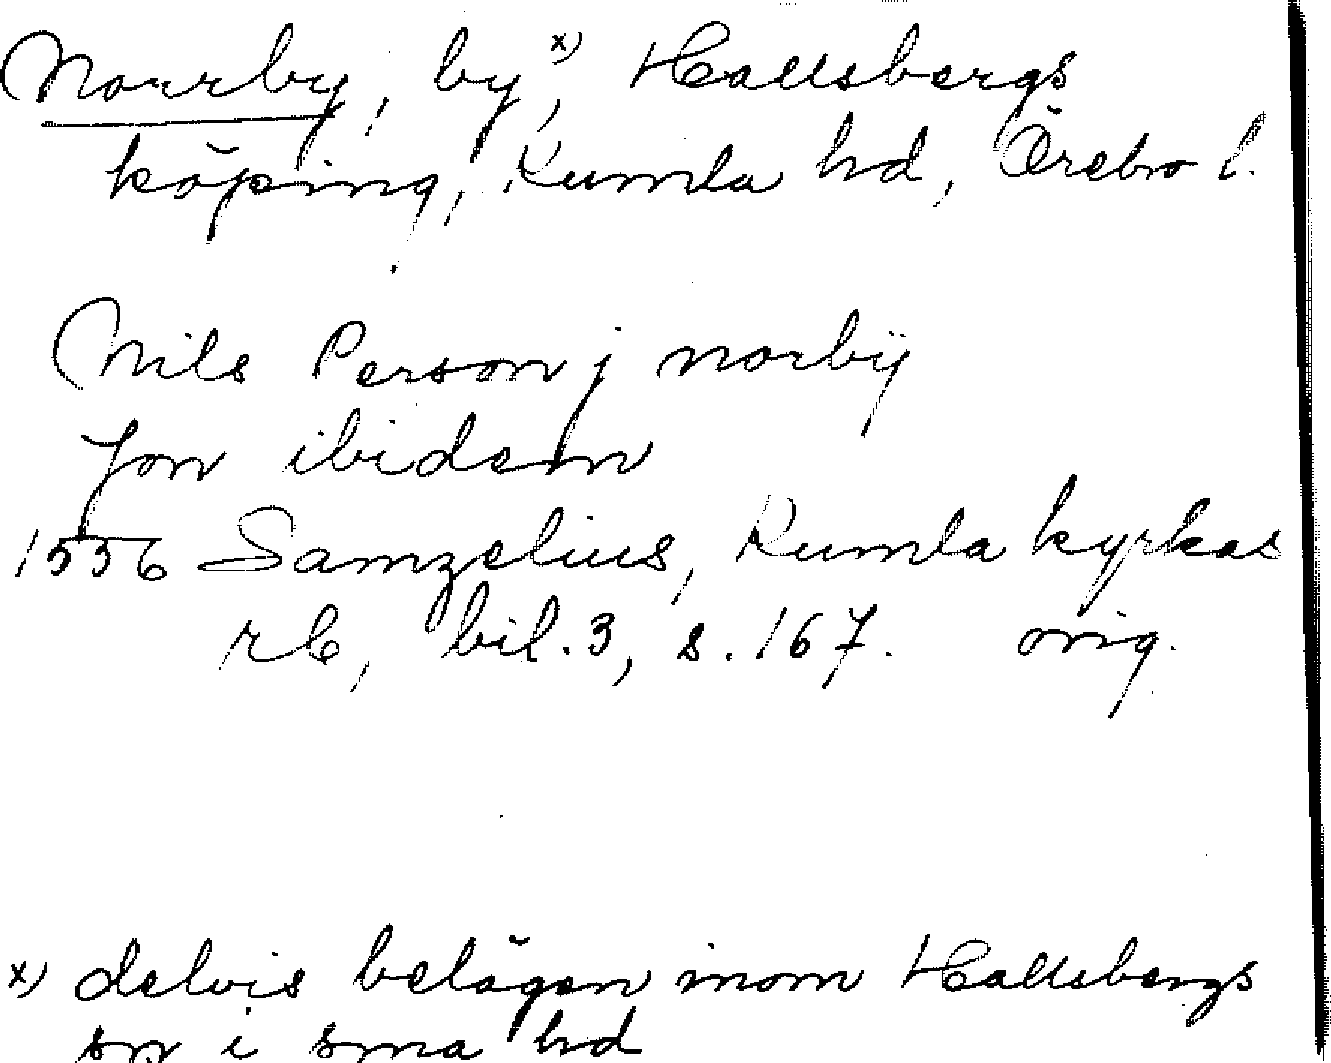 Norrby, by x), Hallsbergs
köping, Kumla hd, Örebro l.
Nils Person j norbÿ
Jon ibidem
1556 Samzelius, Kumla kyrkas
rb, bil. 3, s. 167. orig.
x) delvis belägen inom Hallsbergs
sn i sma hd